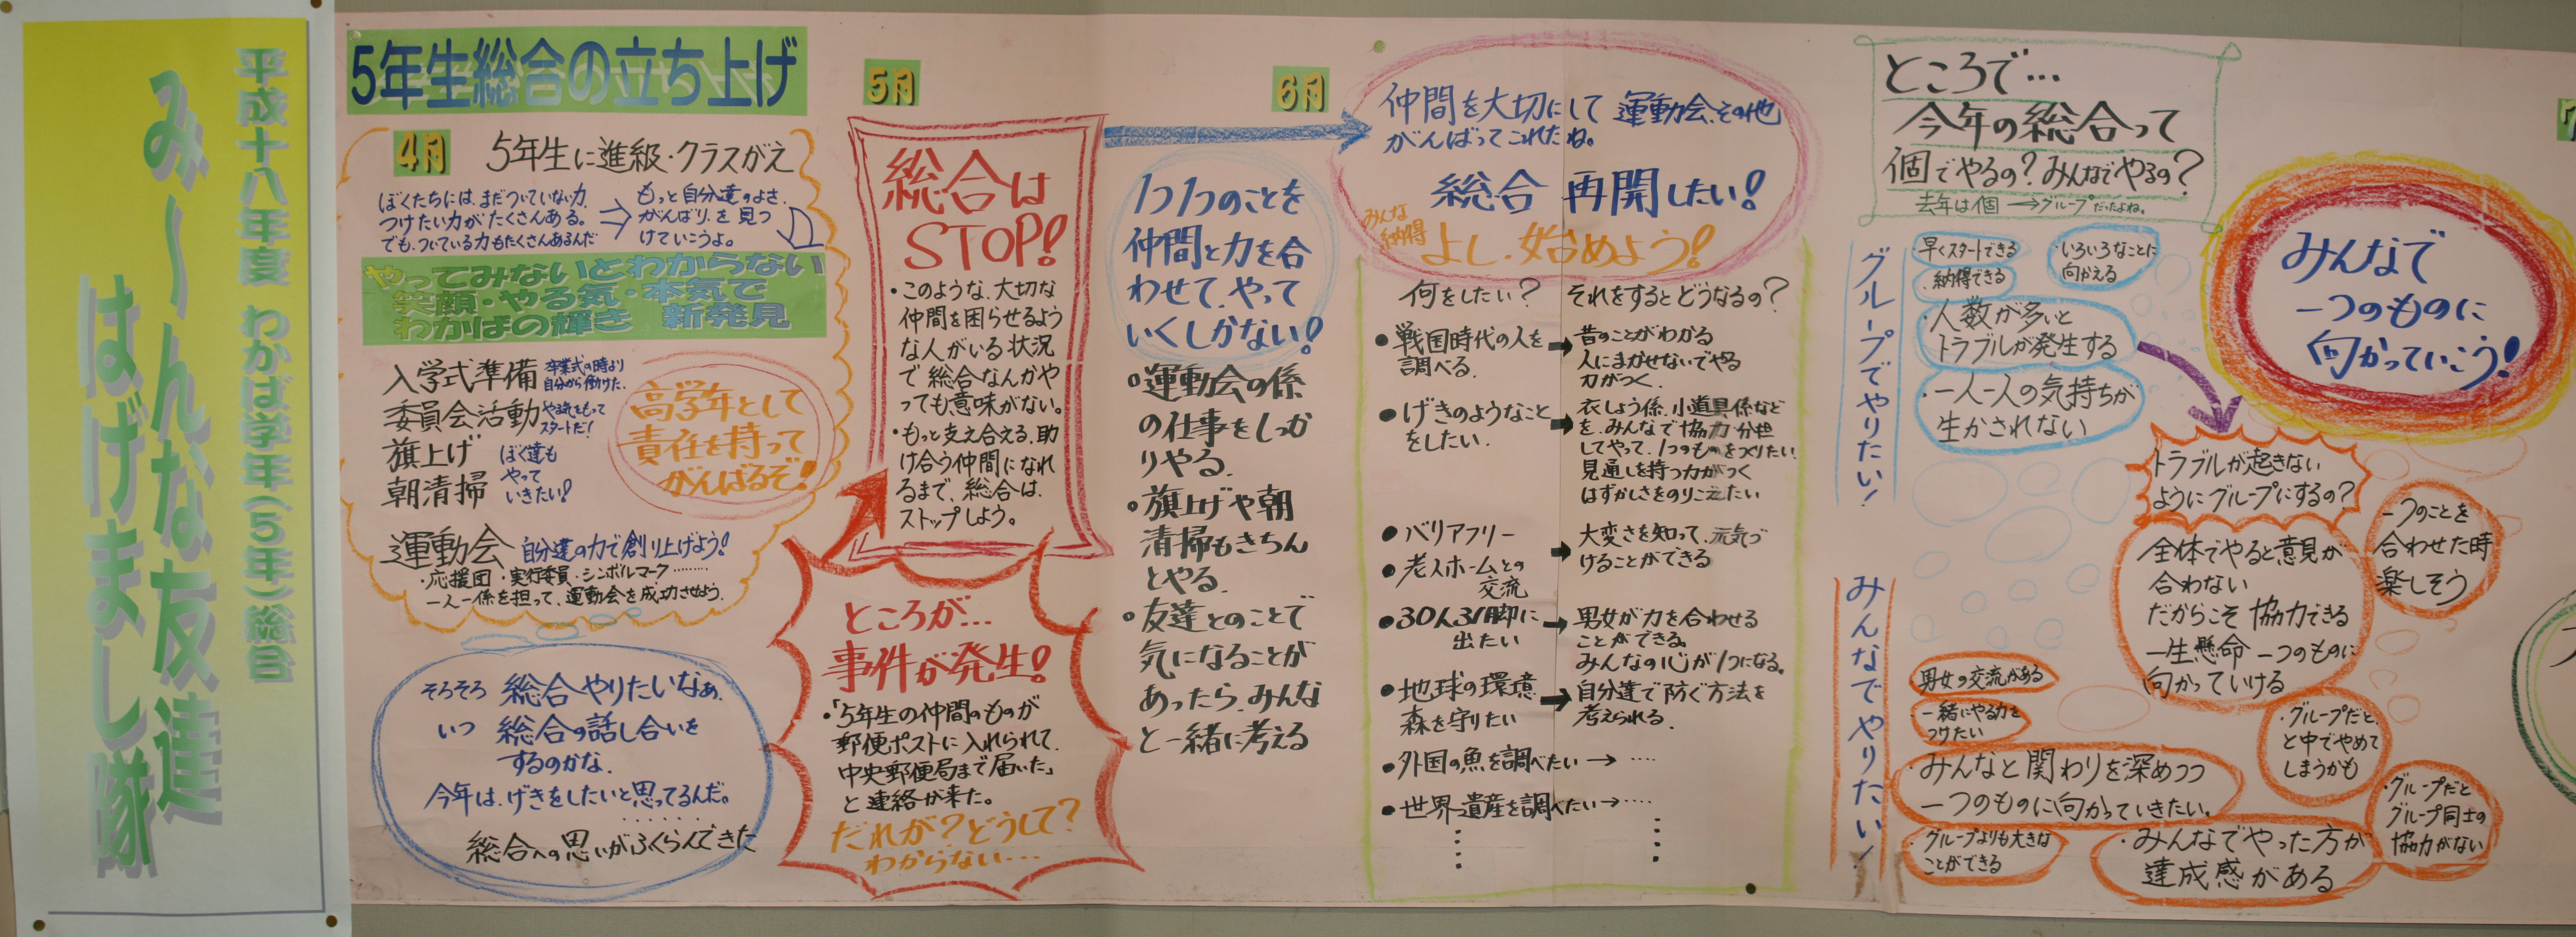 平成十八年度 わかば学年(5年)総合
み〜んな友達
はげまし隊
5年生総合の立ち上げ
4月
5年生に進級・クラスがえ
ぼくたちには、まだついていない力、
つけたい力がたくさんある。
でも、ついている力もたくさんあるんだ
もっと自分達のよさ、
がんばりを見つ
けていこうよ。
やってみないとわからない
笑顔・やる気・本気で
わかばの輝き 新発見
入学式準備
卒業式の時より
自分から働けた。
委員会活動
やる気をもって
スタートだ!
旗上げ
朝清掃
ぼく達も
やって
いきたい!
高学年として
責任を持って
がんばるぞ!
運動会 自分達の力で創り上げよう!
・応援団・実行委員・シンボルマーク………
一人一係を担って、運動会を成功させよう。
そろそろ 総合やりたいなぁ、
いつ 総合の話し合いを
するのかな、
今年は、げきをしたいと思ってるんだ。
……
総合への思いがふくらんできた
5月
総合は
STOP!
・このような、大切な
仲間を困らせるよう
な人がいる状況
で総合なんかや
っても意味がない。
・もっと支え合える、助
け合う仲間になれ
るまで、総合は、
ストップしよう。
ところが…
事件が発生!
・「5年生の仲間のものが
郵便ポストに入れられて、
中央郵便局まで届いた」
と連絡が来た。
だれが?どうして?
わからない…
1つ1つのことを
仲間と力を合
わせて、やって
いくしかない!
○運動会の係
の仕事をしっか
りやる。
○旗上げや朝
清掃もきちん
とやる。
○友達とのことで
気になることが
あったら、みんな
と一緒に考える
6月
仲間を大切にして 運動会、その他
がんばってこれたね。
総合 再開したい!
みんな
納得
よし、始めよう!
何をしたい? それをするとどうなるの?
●戦国時代の人を
調べる。
昔のことがわかる
人にまかせないでやる
力がつく。
●げきのようなこと
をしたい。
衣しょう係、小道具係など
を、みんなで協力・分担
してやって、1つのものをつくりたい
見通しを持つ力がつく
はずかしさをのりこえたい
●バリアフリー
●老人ホームとの
交流
大変さを知って、元気づ
けることができる
●30人31脚に
出たい
男女が力を合わせる
ことができる。
みんなの心が1つになる。
●地球の環境
森を守りたい
自分達で防ぐ方法を
考えられる。
●外国の魚を調べたい→‥‥
●世界遺産を調べたい→‥‥
ところで…
今年の総合って
個でやるの?みんなでやるの?
去年は個→グループだったよね。
グループでやりたい!
・早くスタートできる
・納得できる
・いろいろなことに
向かえる
・人数が多いと
トラブルが発生する
・一人一人の気持ちが
生かされない
みんなで
一つのものに
向かっていこう!
トラブルが起きない
ようにグループにするの?
全体でやると意見が
合わない
だからこそ 協力できる
一生懸命 一つのものに
向かっていける
一つのことを
合わせた時
楽しそう
みんなでやりたい!
男女の交流がある
・一緒にやる力を
つけたい
・みんなと関わりを深めつつ
一つのものに向かっていきたい。
・グループよりも大きな
ことができる
・みんなでやった方が
達成感がある
・グループだと、
と中でやめて
しまうかも
・グループだと
グループ同士の
協力がない